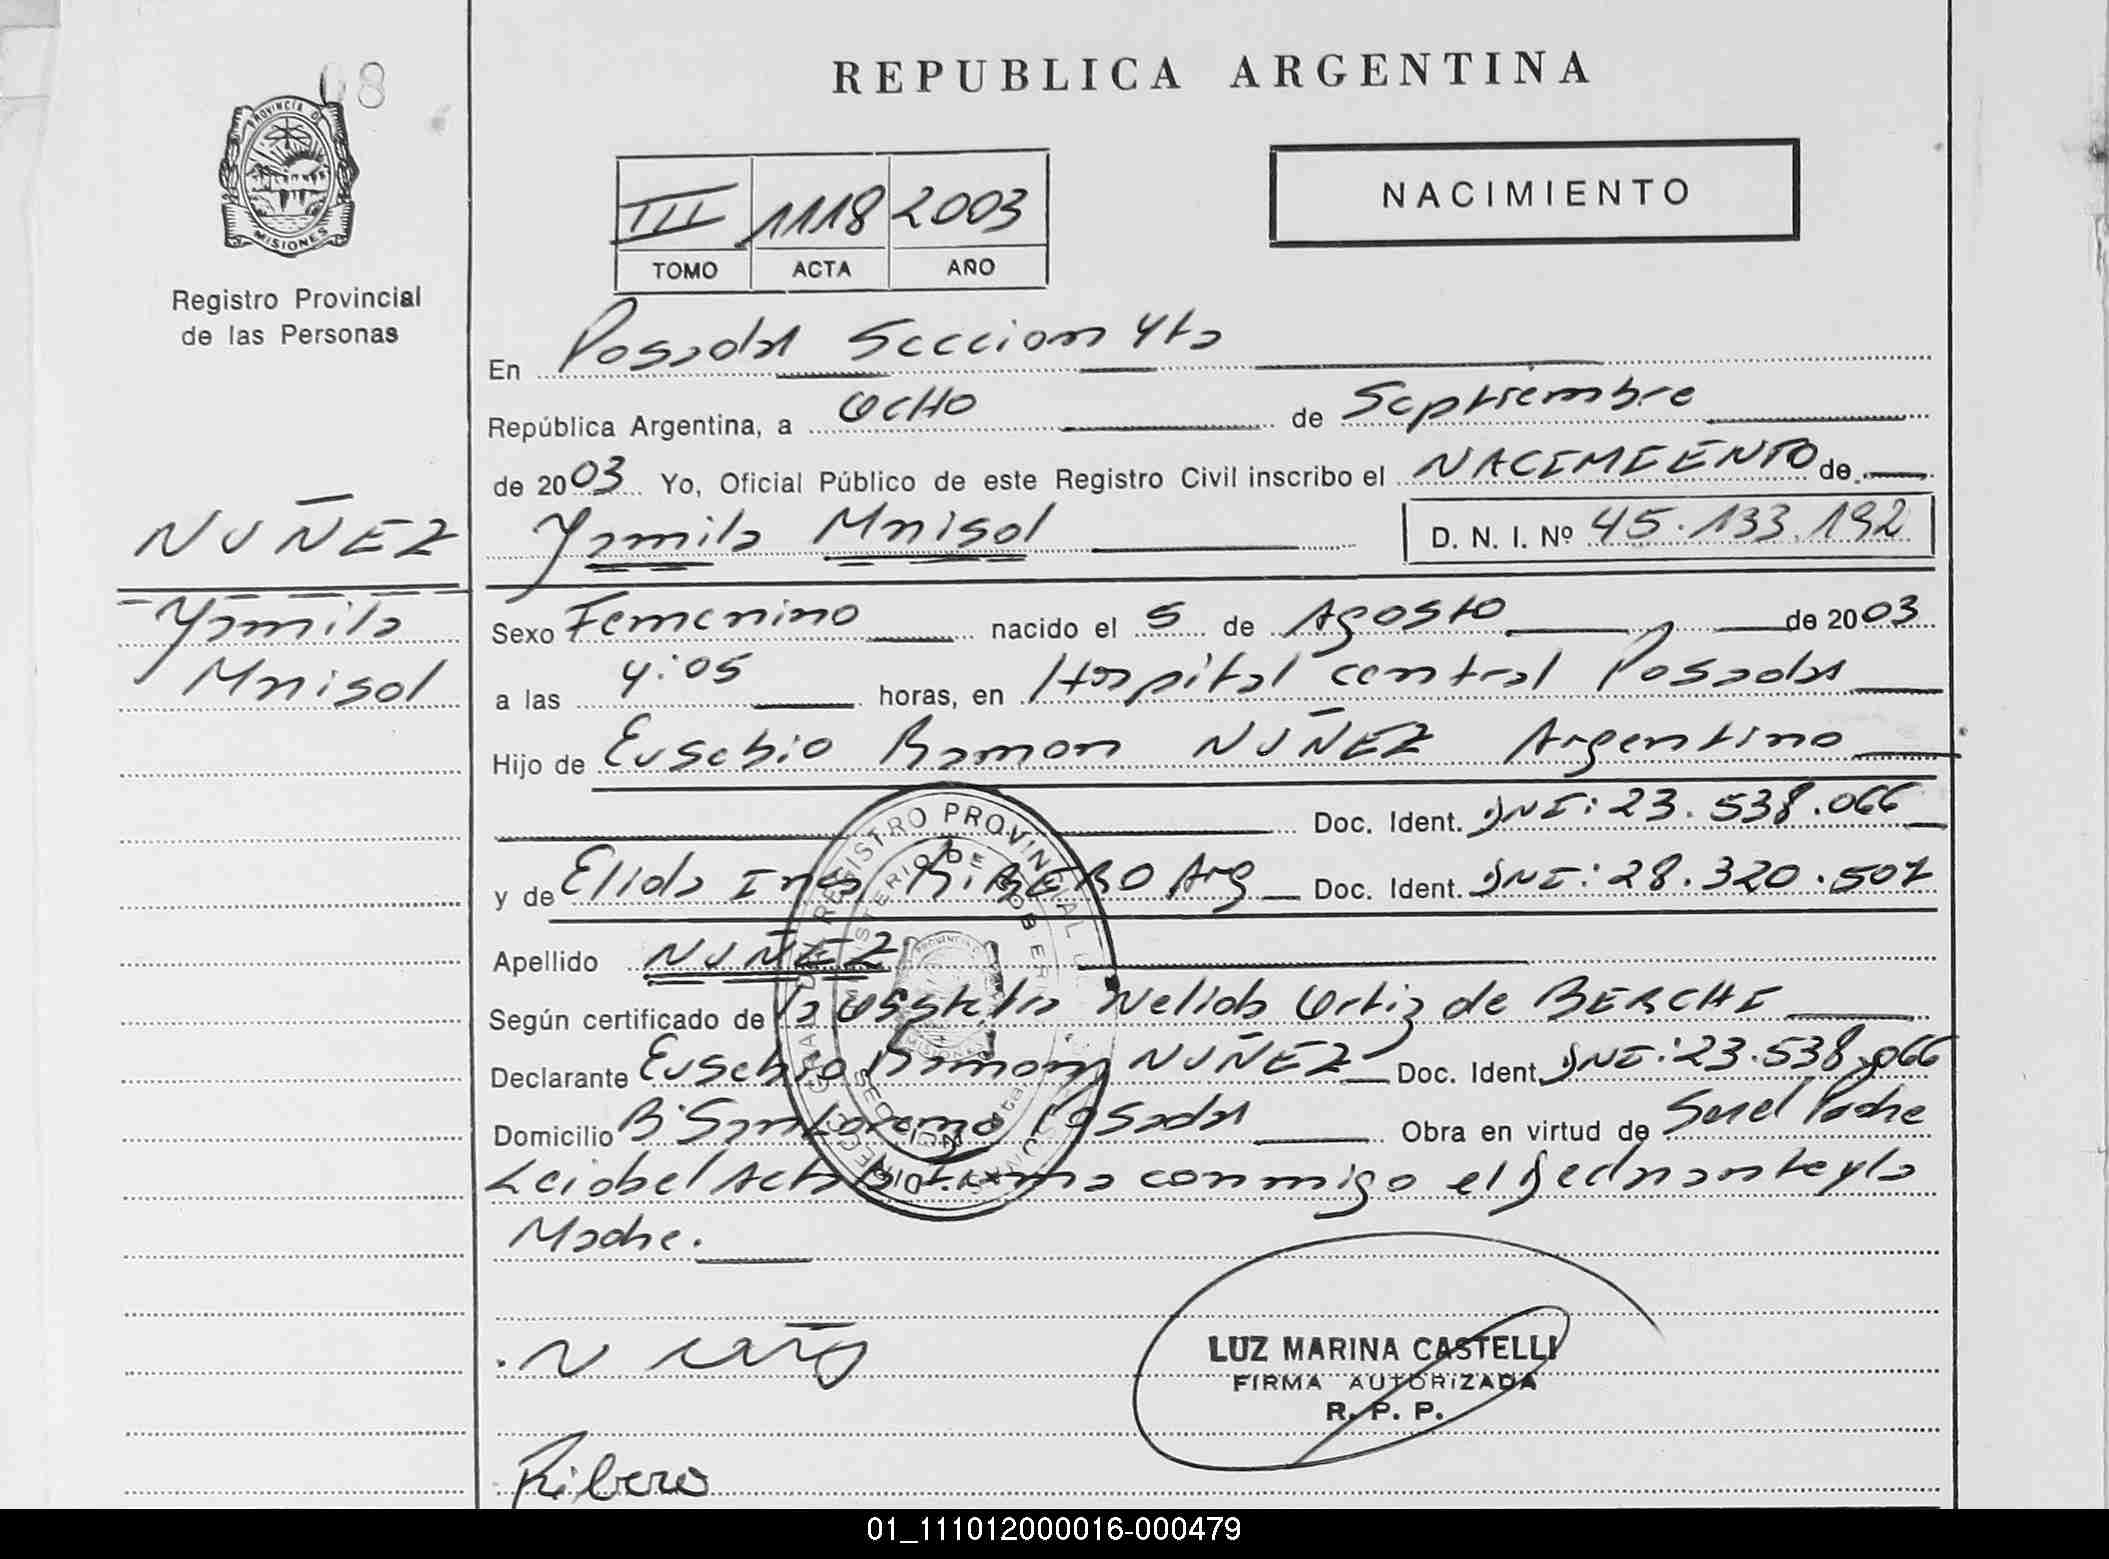 08
REPUBLICA ARGENTINA
PROVINCIA D
MISIONES
Registro Provincial
de las Personas
III 1118 2003
TOMO ACTA AÑO
NACIMIENTO
En Posadas Seccion 4ta
República Argentina, a OCHO de Septiembre
de 2003 Yo, Oficial Público de este Registro Civil inscribo el NACIMIENTO de
NUÑEZ
Yamila Marisol
D. N. I. Nº 45.133.192
Yamila
Marisol
Sexo Femenino nacido el 5 de Agosto de 2003
a las 4:05 horas, en Hospital central Posadas
Hijo de Eusebio Ramon NUÑEZ Argentino
Doc. Ident. DNI: 23.538.066
y de Elida Ines RIBERO Arg Doc. Ident. DNI: 28.320.507
Apellido NUÑEZ
Según certificado de la Obstetra Nelida Ortiz de BERCHI
Declarante Eusebio Ramon NUÑEZ Doc. Ident. DNI: 23.538.066
Domicilio Bº San Lorenzo Posadas Obra en virtud de Ser el Padre
Leida el Acta la firma conmigo el declarante y la
Madre.
LUZ MARINA CASTELLI
FIRMA AUTORIZADA
R. P. P.
Ribero
01_111012000016-000479